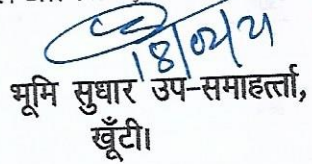 18/02/21
भूमि सुधार उप-समाहर्त्ता,
खूँटी।